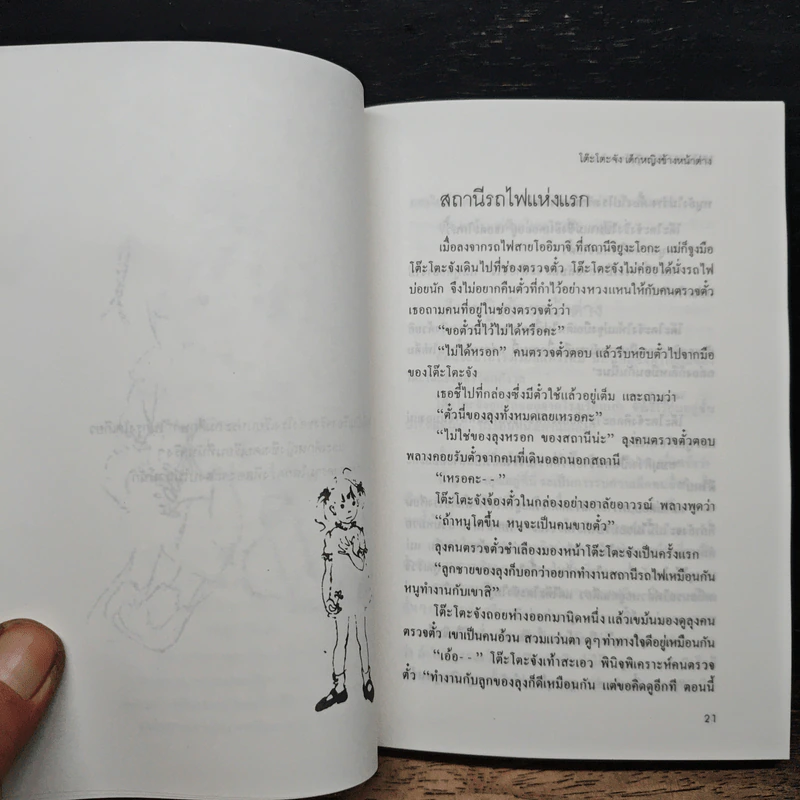 โต๊ะโตะจัง เด็กหญิงข้างหน้าต่าง
สถานีรถไฟแห่งแรก
เมื่อลงจากรถไฟสายโออิมาจิ ที่สถานีจิยูงะโอกะ แม่ก็จูงมือ
โต๊ะโตะจังเดินไปที่ช่องตรวจตั๋ว โต๊ะโตะจังไม่ค่อยได้นั่งรถไฟ
บ่อยนัก จึงไม่อยากคืนตั๋วที่กำไว้อย่างหวงแหนให้กับคนตรวจตั๋ว
เธอถามคนที่อยู่ในช่องตรวจตั๋วว่า
“ขอตั๋วนี้ไว้ไม่ได้หรือคะ”
“ไม่ได้หรอก” คนตรวจตั๋วตอบ แล้วรีบหยิบตั๋วไปจากมือ
ของโต๊ะโตะจัง
เธอชี้ไปที่กล่องซึ่งมีตั๋วใช้แล้วอยู่เต็ม และถามว่า
“ตั๋วนี้ของลุงทั้งหมดเลยเหรอคะ”
“ไม่ใช่ของลุงหรอก ของสถานีน่ะ” ลุงคนตรวจตั๋วตอบ
พลางคอยรับตั๋วจากคนที่เดินออกนอกสถานี
“เหรอคะ- - ”
โต๊ะโตะจังจ้องตั๋วในกล่องอย่างอาลัยอาวรณ์ พลางพูดว่า
“ถ้าหนูโตขึ้น หนูจะเป็นคนขายตั๋ว”
ลุงคนตรวจตั๋วชำเลืองมองหน้าโต๊ะโตะจังเป็นครั้งแรก
“ลูกชายของลุงก็บอกว่าอยากทำงานสถานีรถไฟเหมือนกัน
หนูทำงานกับเขาสิ”
โต๊ะโตะจังถอยห่างออกมานิดหนึ่ง แล้วเขม้นมองดูลุงคน
ตรวจตั๋ว เขาเป็นคนอ้วน สวมแว่นตา ดูๆ ท่าทางใจดีอยู่เหมือนกัน
“เอ้อ- - ” โต๊ะโตะจังเท้าสะเอว พินิจพิเคราะห์คนตรวจ
ตั๋ว “ทำงานกับลูกของลุงก็ดีเหมือนกัน แต่ขอคิดดูอีกที ตอนนี้
21